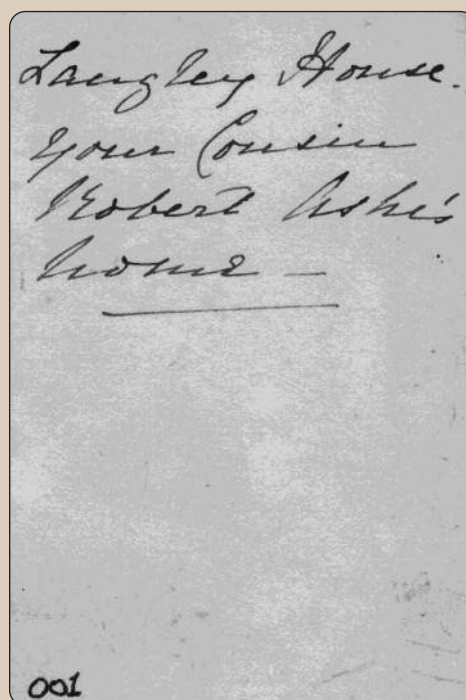 Langley House.
your Cousin
Robert Ashe's
home —
001